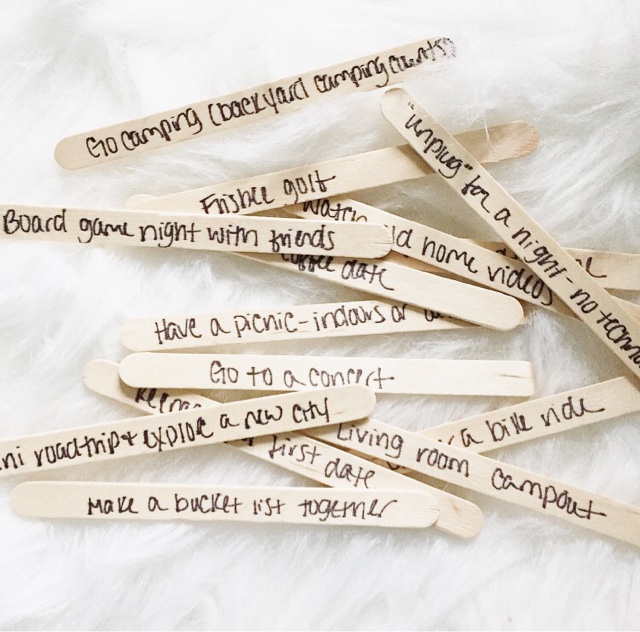 Go camping (backyard camping counts)
"unplug" for a night - no
Frisbee golf
Watch old home videos
Board game night with friends
coffee date
Have a picnic - indoors or
Go to a concert
a bike ride
roadtrip + explore a new city
first date
Living room campout
Make a bucket list together